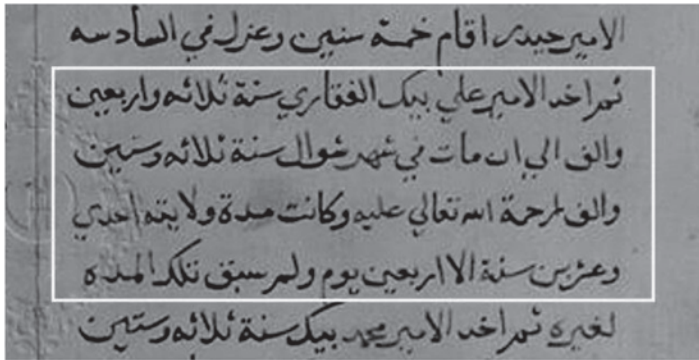 الامير حيدر اقام خمسة سنين وعزل في السادسه
ثم اخد الامير علي بيك الفقاري سنة ثلاثه واربعين
والف الي ان مات في شهر شوال سنة ثلاثه وستين
والف لرحمة الله تعالي عليه وكانت مدة ولايته احدي
وعشرين سنة الا اربعين يوم ولم سبق تلك المده
لغيره ثم اخد الامير محمد بيك سنة ثلاثه وستين